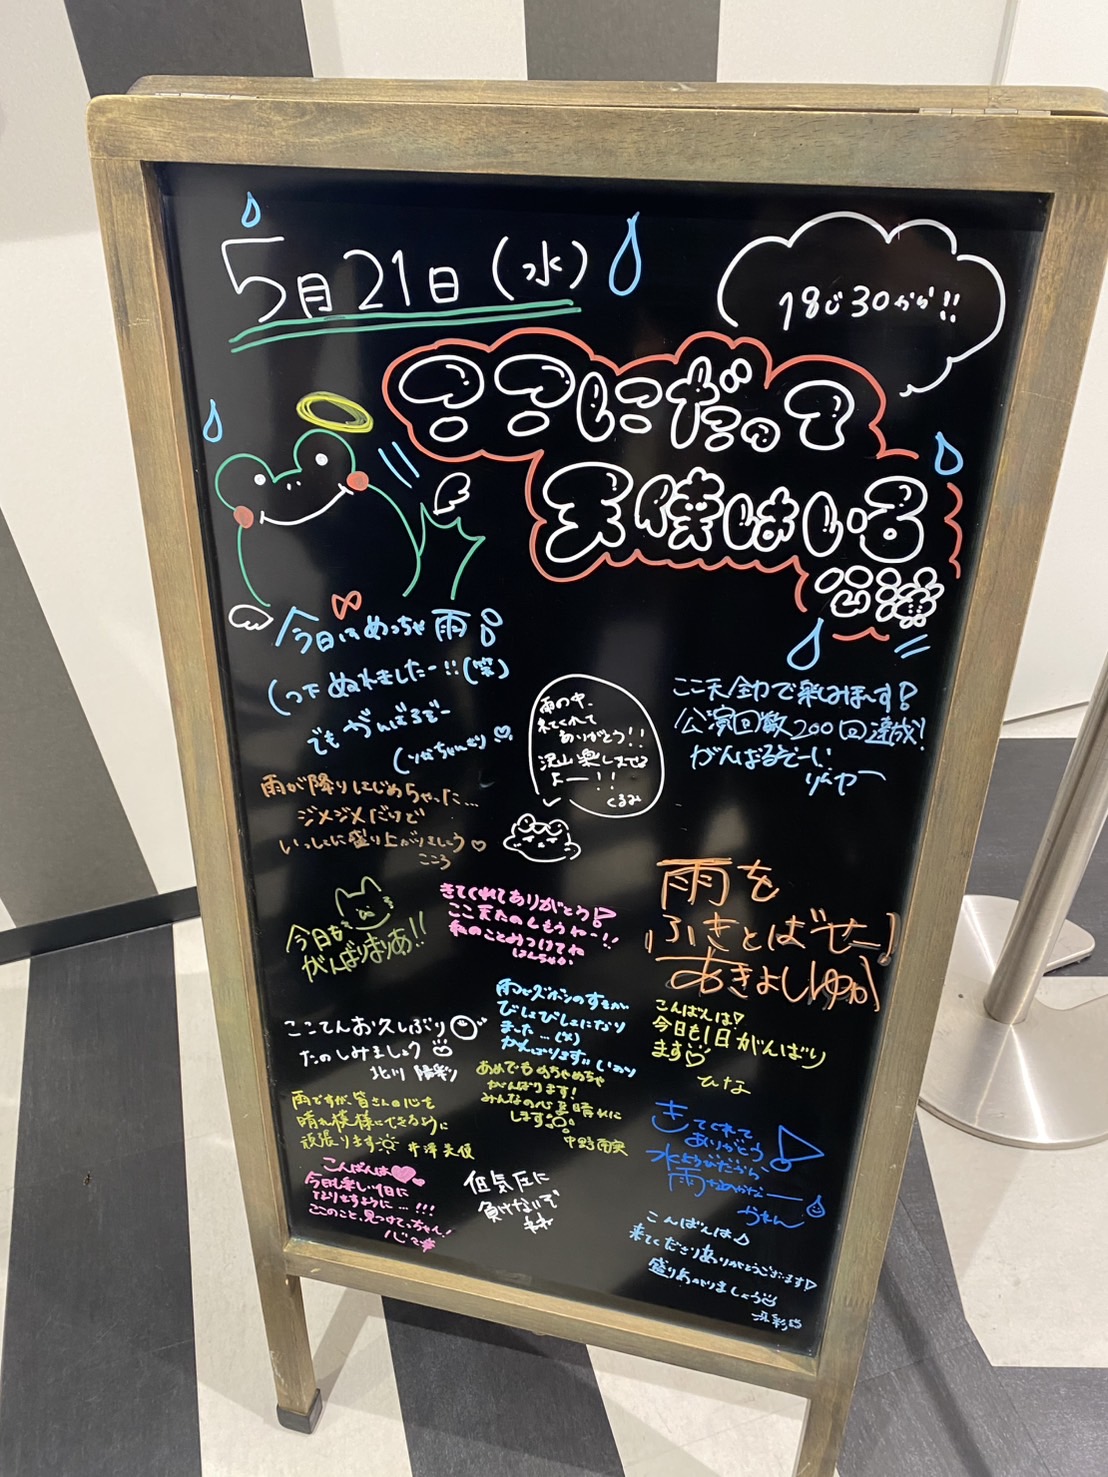 5月21日(水)
18じ30から!!
ここにだって
天使はいる
公演
今日はめっちゃ雨
ぬれましたー!!(笑)
でもがんばるぞー
雨の中、
来てくれて
ありがとう!!
沢山楽しませる
よー!!
くるみ
ここ天ﾉ
公演回数200回達成!
がんばるぞーい
りーやー
雨が降りはじめちゃった...
ジメジメだけど
いっしょに盛り上がりましょう♡
こころ
今日も
がんばりまりあ!!
きてくれてありがとう!
ここ天たのしもうねー!!
私のことみつけてね
雨を
ふきとばせー!
あきよしゆか
雨でズボンのすそが
びしょびしょになり
ました...(笑)
がんばります!! いおり
こんばんは!
今日も1日がんばり
ます♡
ひな
ここてんお久しぶり
たのしみましょう
北川 陽彩
あめでもめちゃめちゃ
がんばります!
みんなの心を晴れに
します
中野南実
雨ですが、皆さんの心を
晴れ模様にできるように
頑張ります 井澤美優
きてくれて
ありがとう
水ようびだから、
雨なのかなー
かれん
こんばんは
今日も楽しい1日に
なりますように...!!!
ここのこと、見つけてっちゃん!
低気圧に
負けないぞ
こんばんは
来てくださりありがとうございます
盛りあがりましょう